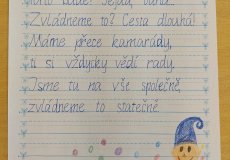 bude!
Zvládneme to? Cesta dlouhá!
Máme přece kamarády,
ti si vždycky vědí rady.
Jsme tu na vše společně,
zvládneme to statečně.